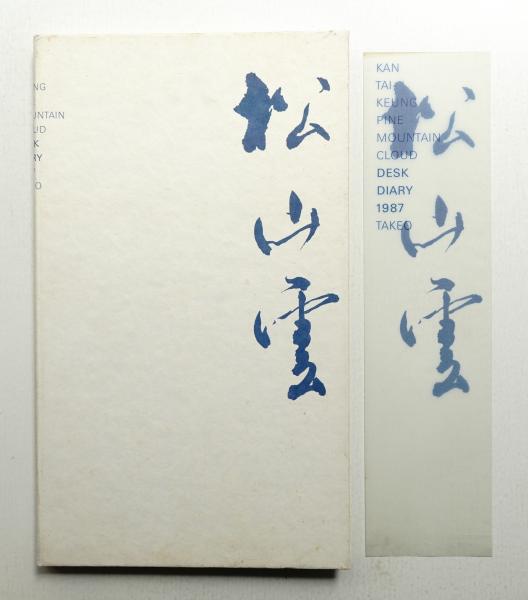 NG
UNTAIN
UD
K
RY
O
松
山
雲
KAN
TAI
KEUNG
PINE
MOUNTAIN
CLOUD
DESK
DIARY
1987
TAKEO
松
山
雲